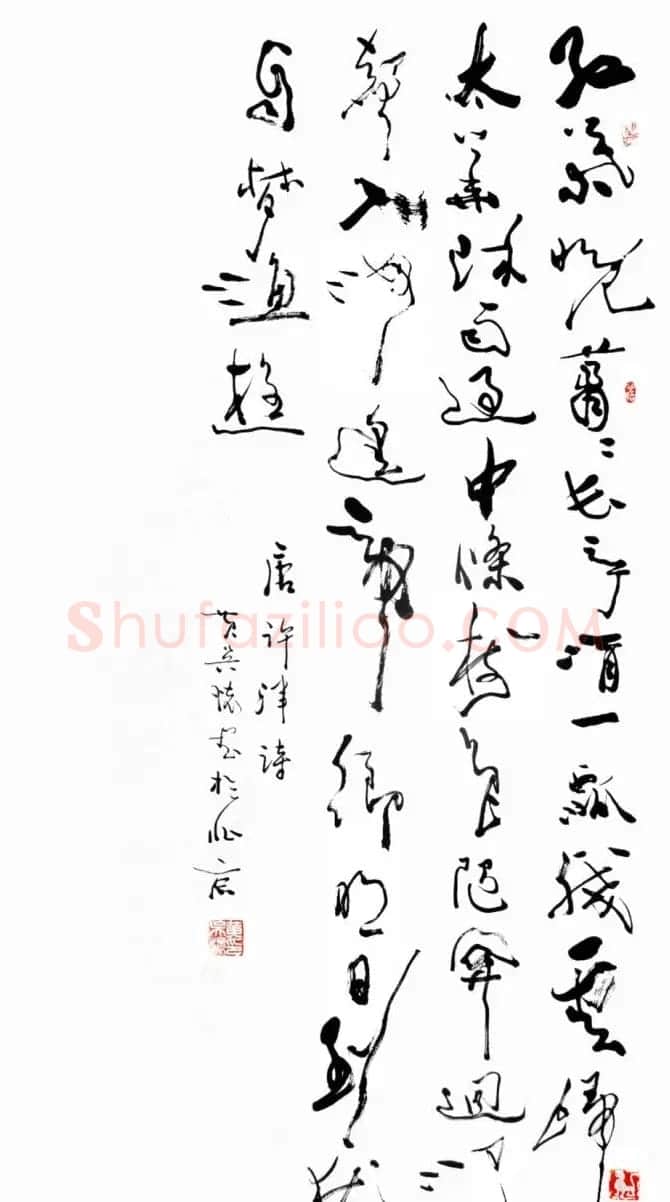 紅葉晚蕭〻長亭酒一瓢殘雲歸
太華疎雨過中條樹色隨關迥河
聲入海遙帝鄉明日到猶
自夢漁樵
唐許渾詩
書於北京
Shufaziliao.COM